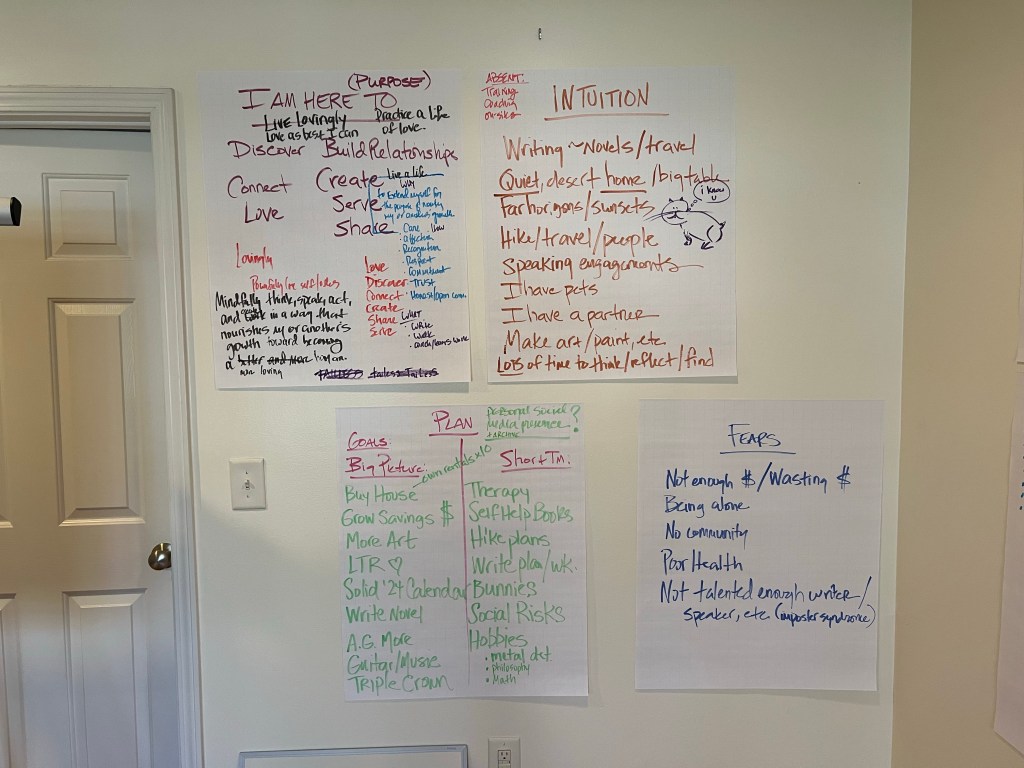 (PURPOSE)
I AM HERE TO
Live Lovingly
Love as best I can
Practice a life
of love.
Discover Build Relationships
Connect Create
Love Serve
Share
Live a life
Why
to extend myself for
the purpose of
my or another's growth
• Care
• Affection
• Recognition
• Respect
• Commitment
• Trust
• Honest/open comm.
Lovingly
Love
Discover
Connect
Create
Share
Serve
WHAT
• Write
• Walk
Mindfully think, speak, act,
and work in a way that
nourishes my or another's
growth toward becoming
a better and more human.
more loving
ABSENT:
Training
Coaching
on-sites
INTUITION
Writing ~ Novels/travel
Quiet, desert home/big table
Far horizons/sunsets
i know
Hike/travel/people
Speaking engagements
I have pets
I have a partner
Make art/paint, etc
Lots of time to think/reflect/find
PLAN
personal social
media presence ?
+ ARCHIVE
GOALS:
Big Picture:
own rentals x10
Buy House
Grow Savings $
More Art
LTR ♡
Solid '24 Calendar
Write Novel
A.G. More
Guitar/Music
Triple Crown
Short Tm.
Therapy
Self Help Books
Hike plans
Write plan/wk.
Bunnies
Social Risks
Hobbies
• metal det.
• philosophy
• Math
FEARS
Not enough $/Wasting $
Being alone
No community
Poor Health
Not talented enough writer/
speaker, etc (imposter syndrome)